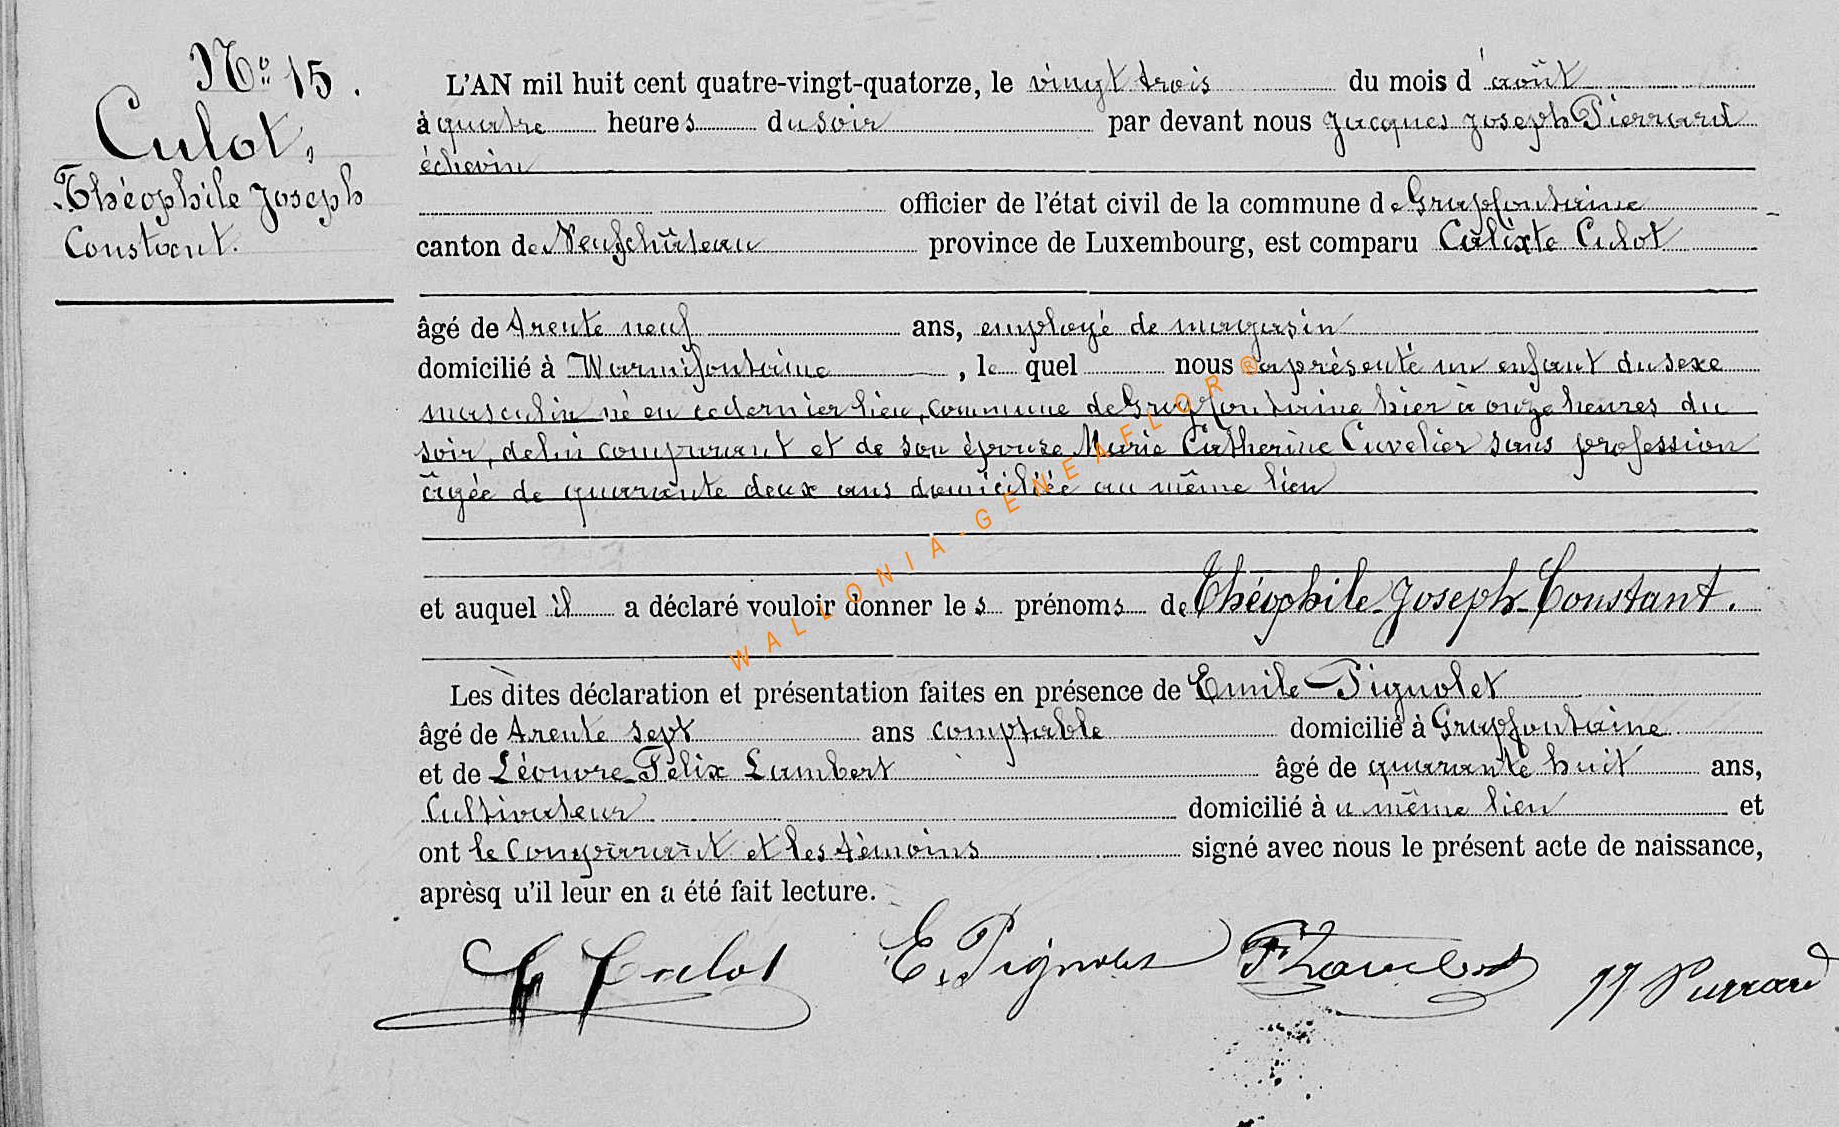 No 15.
Culot,
Théophile Joseph
Constant.
L'AN mil huit cent quatre-vingt-quatorze, le vingt trois du mois d'août
à quatre heures du soir par devant nous Jacques Joseph Pierrard
échevin
officier de l'état civil de la commune de Grapfontaine
canton de Neufchâteau province de Luxembourg, est comparu Calixte Culot
âgé de trente neuf ans, employé de magasin
domicilié à Warmifontaine, le quel nous a présenté un enfant du sexe
masculin né en ce dernier lieu, commune de Grapfontaine hier à onze heures du
soir, de lui comparant et de son épouse Marie Catherine Cuvelier sans profession
âgée de quarante deux ans domiciliée au même lieu
et auquel il a déclaré vouloir donner les prénoms de Théophile-Joseph-Constant.
Les dites déclaration et présentation faites en présence de Emile Pignolet
âgé de trente sept ans comptable domicilié à Grapfontaine
et de Léonore Félix Lambert âgé de quarante huit ans,
Cultivateur domicilié au même lieu et
ont le Comparant et les témoins signé avec nous le présent acte de naissance,
aprèsq u'il leur en a été fait lecture.
Culot E. Pignolet F Lambert JJ Pierrard
WALLONIA-GENEAFLOR ®